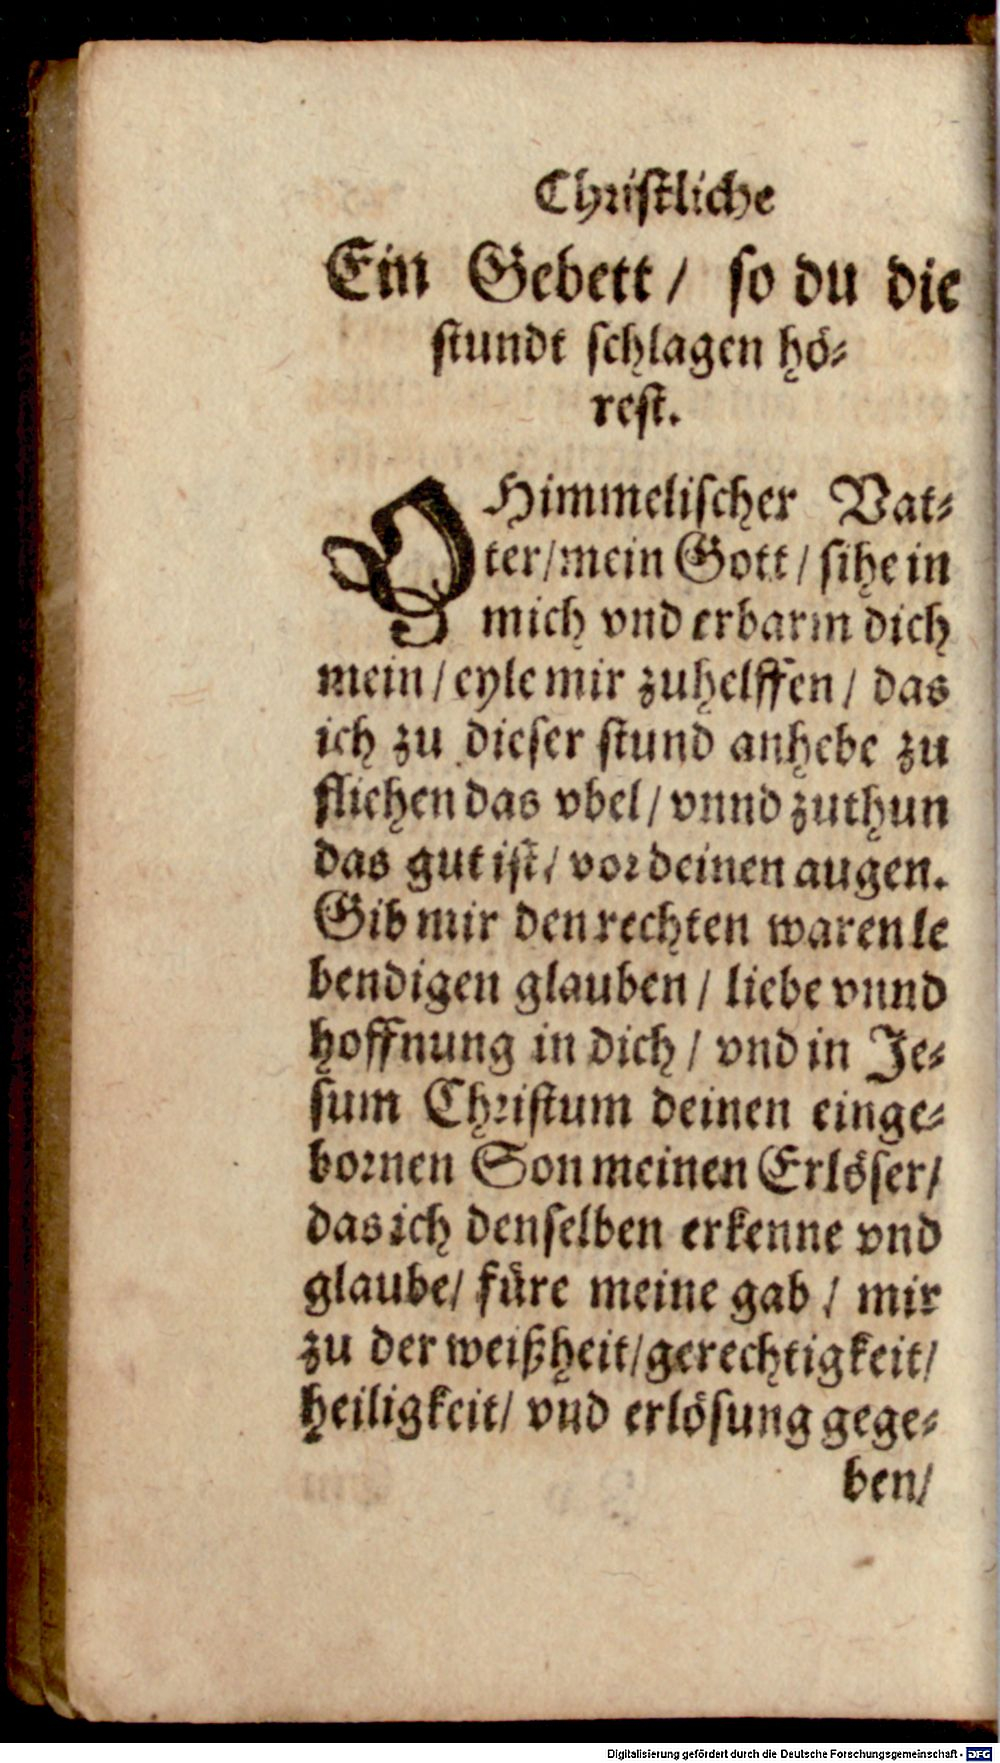 Christliche
Ein Gebett / so du die
stundt schlagen hö-
rest.
O Himmelischer Vat-
ter / mein Gott / sihe in
mich vnd erbarm dich
mein / eyle mir zuhelffen / das
ich zu dieser stund anhebe zu
fliehen das vbel / vnnd zuthun
das gut ist / vor deinen augen.
Gib mir den rechten waren le
bendigen glauben / liebe vnnd
hoffnung in dich / vnd in Je-
sum Christum deinen einge-
bornen Son meinen Erlöser /
das ich denselben erkenne vnd
glaube / füre meine gab / mir
zu der weißheit / gerechtigkeit /
heiligkeit / vnd erlösung gege-
ben /
Digitalisierung gefördert durch die Deutsche Forschungsgemeinschaft - DFG